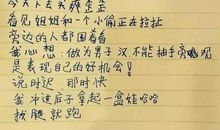 看见姐姐和一个小偷正在拉扯
旁边的人都围着看
我心想:做为男子汉不能袖手旁观
是表现自己的好机会!
说时迟 那时快
我冲进店子拿起一盒娃哈哈
拔腿就跑